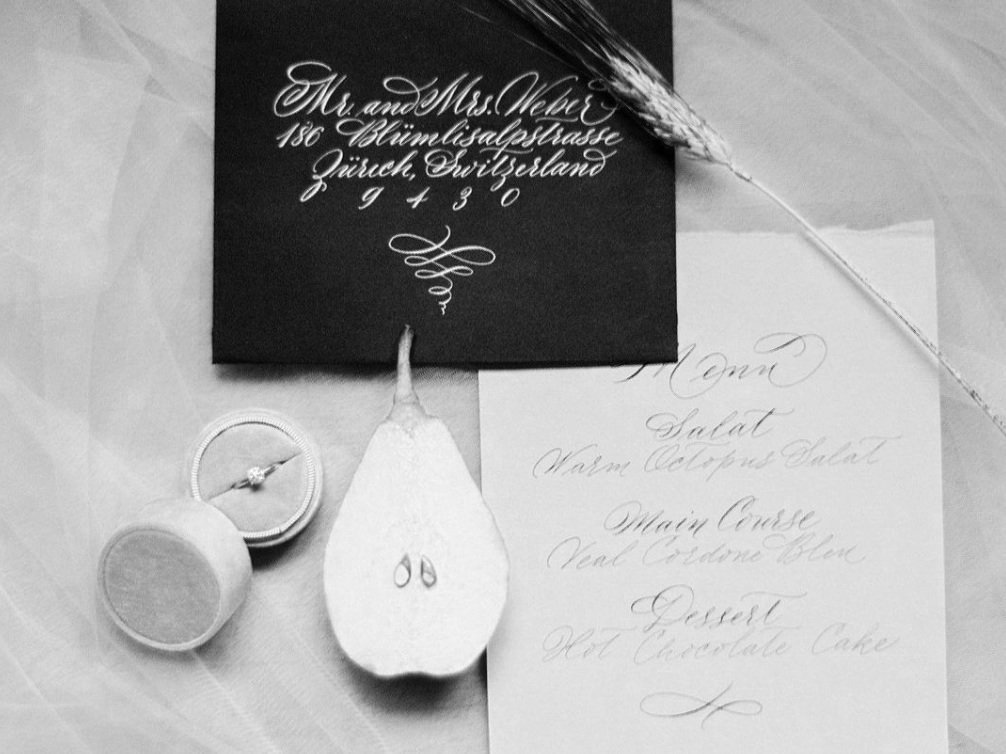 Mr. and Mrs. Weber
186 Blümlisalpstrasse
Zürich, Switzerland
9430
Menu
Salat
Warm Octopus Salat
Main Course
Veal Cordone Bleu
Dessert
Hot Chocolate Cake